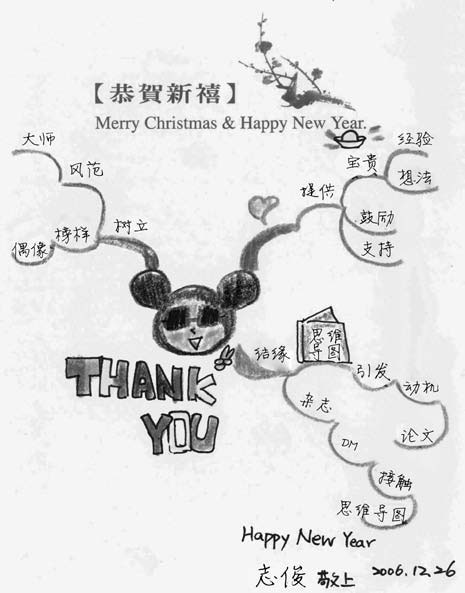 【恭賀新禧】
Merry Christmas & Happy New Year.
大师
风范
榜样
偶像
树立
提供
宝贵
经验
想法
鼓励
支持
THANK
YOU
结缘
思维
导图
引发
动机
论文
杂志
DM
接触
思维导图
Happy New Year
志俊 敬上 2006.12.26